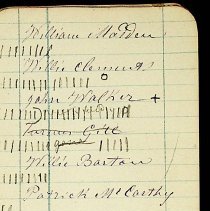 William Madden
Willie Clements
John Walker +
James Gill
gone
Willie Barton
Patrick McCarthy